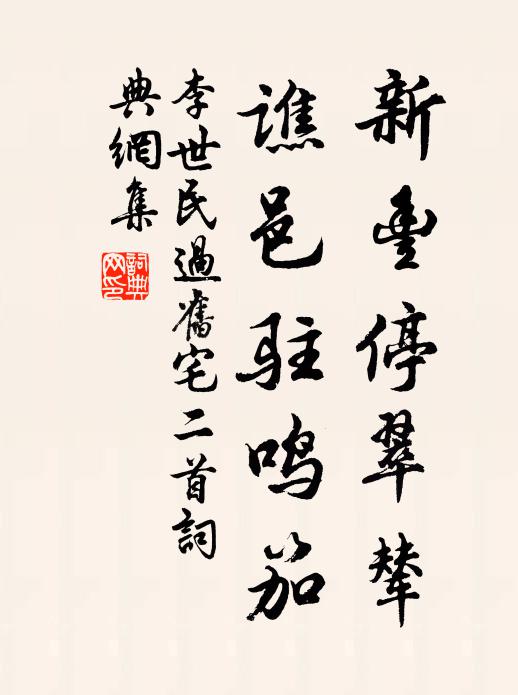 新豐停翠輦
譙邑駐鳴笳
李世民過舊宅二首詞
典網集
詞典
网印